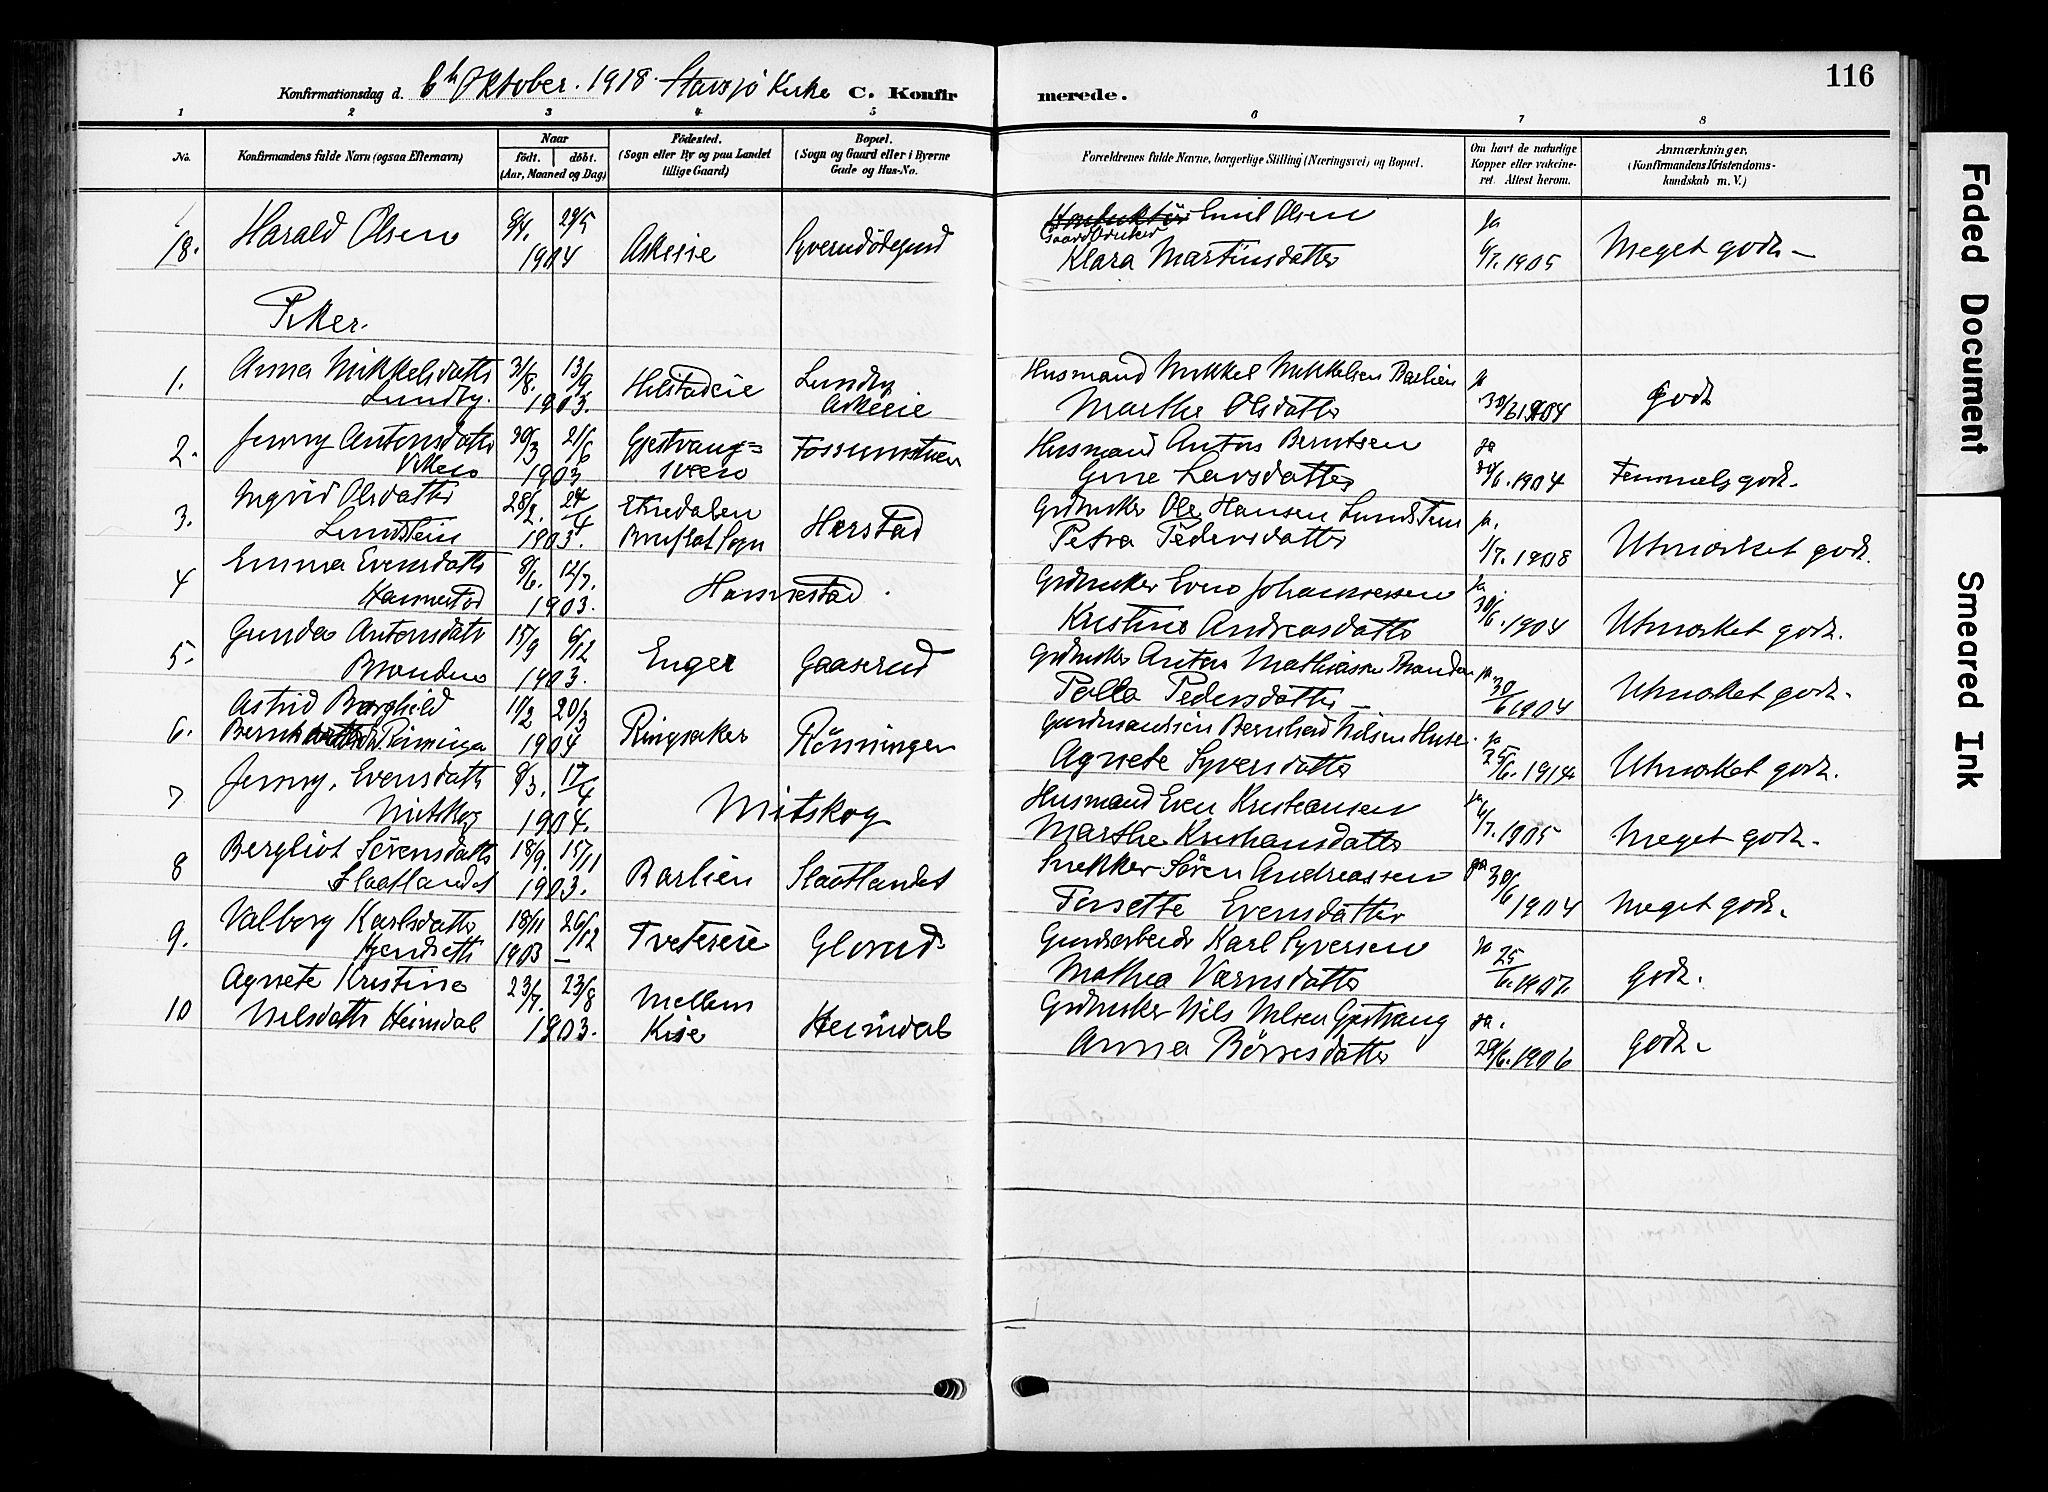 116
Konfirmationsdag d. 6te Oktober. 1918. Stavsjö Kirke C. Konfirmerede.
1 2 3 4 5 6 7 8
No.
Konfirmandens fulde Navn (ogsaa Efternavn)
Naar
födt. döbt.
(Aar, Maaned og Dag)
Födested.
(Sogn eller By og paa Landet
tillige Gaard)
Bopæl.
(Sogn og Gaard eller i Byerne
Gade og Hus-No.
Forældrenes fulde Navne, borgerlige Stilling (Næringsvei) og Bopæl.
Om havt de naturlige
Kopper eller vakcine-
ret. Attest herom.
Anmærkninger,
(Konfirmandens Kristendoms-
kundskab m. V.)
18. Harald Olsen 9/4. 29/5 1904 Askeie
Emil Olsen
Gaardbruker
Klara Martinsdatter
Ja 6/7. 1905 Meget godt.
Piker.
1. Anna Mikkelsdatter
Lundby. 31/8. 13/9 1903. Helstadeie Lundby
Askeeie
Husmand Mikkel Mikkelsen Barlien
Marthe Olsdatter
Ja 30/6 1904 Godt
2. Jenny Antonsdatter
Viken 30/3 21/6 1903 Gjestvang=
sveen
Husmand Anton Berntsen
Gine Larsdatter
Ja 30/6. 1904 Temmelig godt.
3. Ingrid Olsdatter
Lundstein 28/2. 24/4 1903. Etnedalen
Bruflat Sogn Harstad
Grdbruker Ole Hansen Lundstein
Petra Pedersdatter
Ja. 1/7. 1908 Utmærket godt.
4 Emma Evensdatter
Hammerstad 8/6. 12/7. 1903.
Grdbruker Even Johannessen
Kristine Andreasdatter
Ja. 30/6. 1904 Utmærket godt.
5. Gunda Antonsdatter
Branden 15/9 6/12 1903. Enger Gaaserud
Grdbruker Anton Mathiassen Branden
Pedersdatter
Ja. 30/6 1904 Utmærket godt.
6. Astrid Borghild
Rönninga 11/2 20/3 1904 Ringsaker Rönningen
Gardmandsön Bernhard Nilsen Huse
Agnete Syversdatter
Ja 25/6. 1914 Utmærket godt.
7 Jenny. Evensdatter
Mitskog 8/3. 17/4 1904. Mitskog
Husmand Even Kristiansen
Marthe Kristiansdatter
Ja 6/7. 1905 Meget godt.
8 Bergliot Sörensdatter
Slaatlandet 18/9. 15/11 1903. Barlien Slaatlandet
Snekker Sören Andreassen
Evensdatter
Ja 30/6 1904 Meget godt.
9. Valborg Karlsdatter
18/11 26/12 1903 Tvetereie
Gardsarbeider Karl Syversen
Mathea
Ja 25/6. 1907. Godt.
10 Agnete Kristine
Nilsdatter Heimdal 23/7. 23/8 1903. Mellem
Kise Heimdal
Grdbruker Nils Nilsen Gjestvang
Anna Börresdatter
Ja. 29/6. 1906 Godt.
Faded Document
Smeared Ink